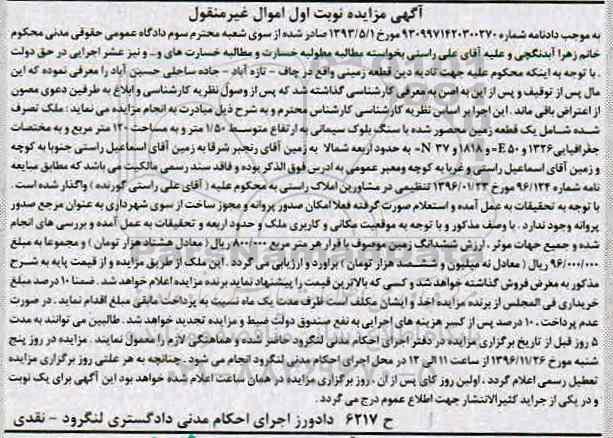 آگهی مزایده نوبت اول اموال غیرمنقول
به موجب دادنامه شماره ۹۳۰۹۹۷۱۴۲۰۳۰۰۳۷۰ مورخ ۱۳۹۳/۵/۱ صادر شده از سوی شعبه محترم سوم دادگاه عمومی حقوقی مدنی محکوم
خانم زهرا آبدنگچی و علیه آقای علی راستی بخواسته مطالبه معلولیه خسارت و مطالبه خسارت های و.. و نیز عشر اجرایی در حق دولت
. با توجه به اینکه محکوم علیه جهت تادیه دین قطعه زمینی واقع در چاف - تازه آباد - جاده ساحلی حسین آباد را معرفی نموده که این
مال پس از توقیف و پس از این به اصن به معرفی کارشناسی گذاشته شد که پس از وصول نظریه کارشناسی و ابلاغ به طرفین دعوی مصون
از اعتراض باقی ماند. این اجرا بر اساس نظریه کارشناسی کارشناس محترم و به شرح ذیل مبادرت به انجام مزایده می نماید : ملک تصرف
شده شامل یک قطعه زمین محصور شده با سنگ بلوک سیمانی به ارتفاع متوسط ۱/۵۰ متر و به مساحت ۱۲۰ متر مربع و به مختصات
جغرافیایی ۱۳۲۶ و ۵۰ E= و ۸۱۸ و ۳۷ N- به حدود اربعه شمالا به زمین آقای رنجبر شرقا به زمین آقای اسماعیل راستی جنوبا به کوچه
و زمین آقای اسماعیل راستی و غربا به کوچه ومعبر عمومی به آدرس فوق الذکر بوده و فاقد سند رسمی مالکیت می باشد که مطابق مبایعه
نامه شماره ۹۶/۱۲۴ مورخ ۱۳۹۶/۰۱/۲۳ تنظیمی در مشاورین املاک راستی به محکوم علیه ( آقای علی راستی گورنده ) واگذار شده است .
با توجه به تحقیقات به عمل آمده و استعلام صورت گرفته فعلا امکان صدور پروانه و مجوز ساخت از سوی شهرداری به عنوان مرجع صدور
پروانه وجود ندارد . با وصف مذکور و با توجه به موقعیت مکانی و کاربری ملک و حدود اربعه و تحقیقات به عمل آمده و بررسی های انجام
شده و جمیع جهات موثر . ارزش ششدانگ زمین موصوف با قرار هر متر مربع ۸۰۰/۰۰۰ ریال ( معادل هشتاد هزار تومان ) و مجموعا به مبلغ
۹۶/۰۰۰/۰۰۰ ریال ( معادل نه میلیون و ششصد هزار تومان ) براورد و ارزیابی می گردد . این ملک از طریق مزایده و از قیمت پایه به شرح
مذکور به معرض فروش گذاشته خواهد شد و کسی که بالاترین قیمت را پیشنهاد نماید برنده مزایده اعلام خواهد شد . ضمنا ۱۰ درصد مبلغ
خریداری فی المجلس از برنده مزایده اخذ و ایشان مکلف است ظرف مدت یک ماه نسبت به پرداخت مابقی مبلغ اقدام نماید . در صورت
عدم پرداخت ، ۱۰ درصد پس از کسر هزینه های اجرایی به نفع صندوق دولت ضبط و مزایده تجدید خواهد شد. طالبین می توانند به مدت
۵ روز قبل از تاریخ برگزاری مزایده در دفتر اجرای احکام مدنی لنگرود حاضر شده و هماهنگی لازم را معمول نمایند . مزایده در روز پنج
شنبه مورخ ۱۳۹۶/۱۱/۲۶ از ساعت ۱۱ الی ۱۲ در محل اجرای احکام مدنی لنگرود انجام می شود . چنانچه به هر علتی روز برگزاری مزایده
تعطیل رسمی اعلام گردد ، اولین روز کاری پس از آن ، روز برگزاری مزایده در همان ساعت اعلام شده خواهد بود این آگهی برای یک نوبت
و در یکی از جراید کثیرالانتشار جهت اطلاع عموم درج می گردد .
ح ۶۲۱۷ دادورز اجرای احکام مدنی دادگستری لنگرود - نقدی